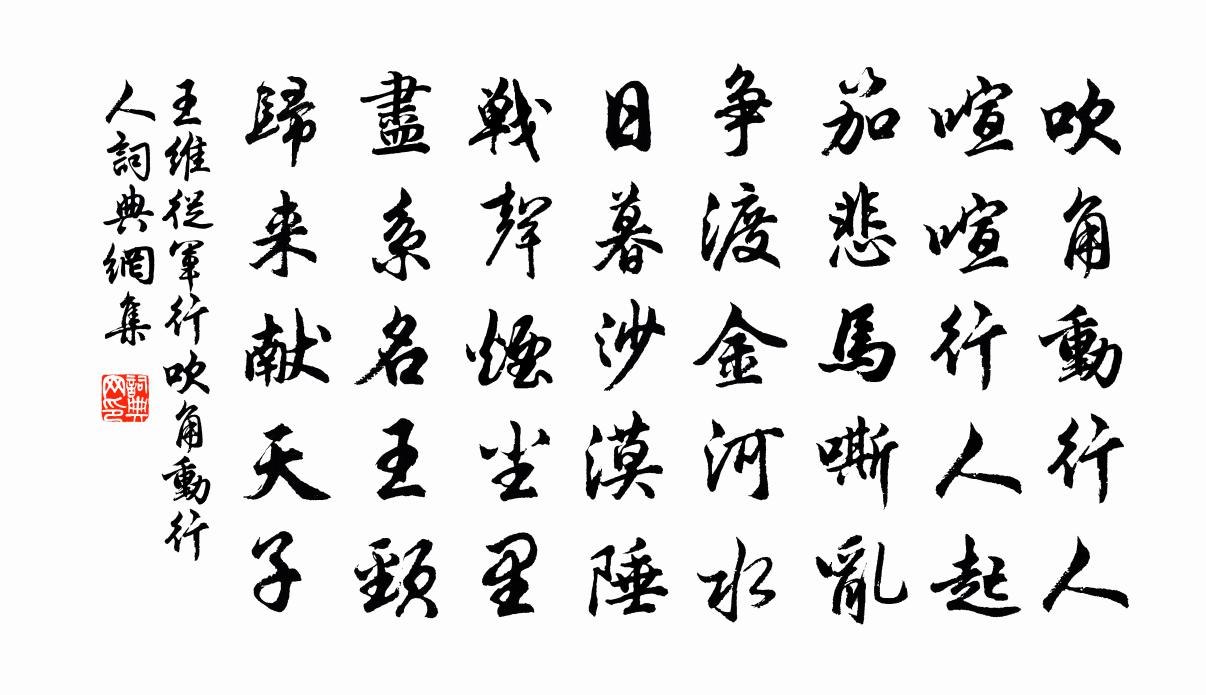 吹角動行人
喧喧行人起
笳悲馬嘶亂
争渡金河水
日暮沙漠陲
戦聲煙尘里
盡系名王頸
歸来献天子
王維從軍行吹角動行
人詞典網集
詞典
网印